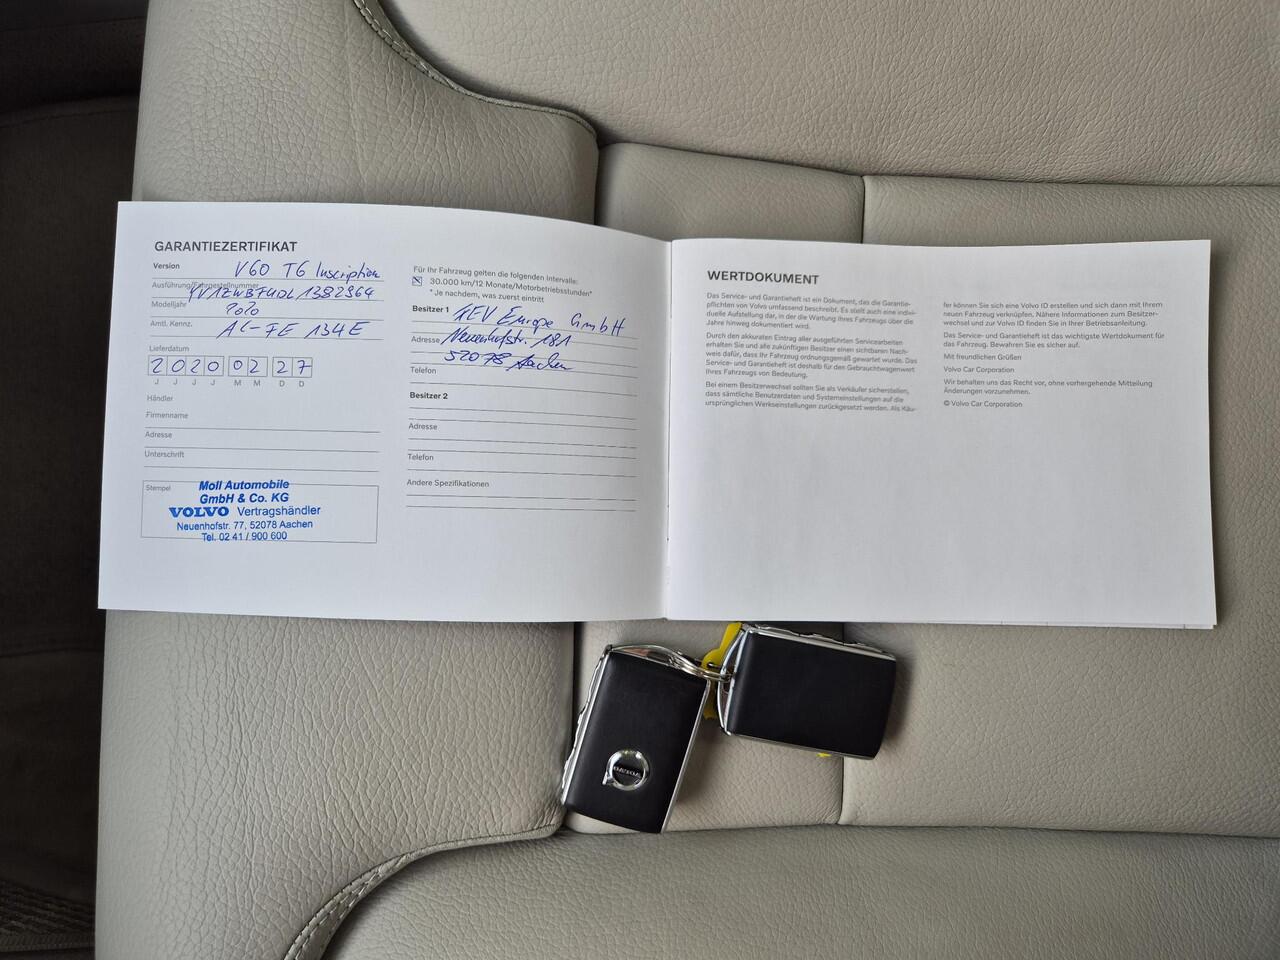 GARANTIEZERTIFIKAT
Version V60 T6 Inscription
Ausführung/Fahrgestellnummer
Modelljahr 2020
Amtl. Kennz. AC-FE 134E
Lieferdatum
2 0 2 0 0 2 2 7
J J J J M M D D
Händler
Firmenname
Adresse
Unterschrift
Stempel
Moll Automobile
GmbH & Co. KG
VOLVO Vertragshändler
Neuenhofstr. 77, 52078 Aachen
Tel. 02 41 / 900 600
Für Ihr Fahrzeug gelten die folgenden Intervalle:
30.000 km/12 Monate/Motorbetriebsstunden*
* Je nachdem, was zuerst eintritt
Besitzer 1 FEV Europe GmbH
Adresse Neuenhofstr. 181
52078 Aachen
Telefon
Besitzer 2
Adresse
Telefon
Andere Spezifikationen
WERTDOKUMENT
Das Service- und Garantieheft ist ein Dokument, das die Garantie-
pflichten von Volvo umfassend beschreibt. Es stellt auch eine indivi-
duelle Aufstellung dar, in der die Wartung Ihres Fahrzeugs über die
Jahre hinweg dokumentiert wird.
Durch den akkuraten Eintrag aller ausgeführten Servicearbeiten
erhalten Sie und alle zukünftigen Besitzer einen sichtbaren Nach-
weis dafür, dass Ihr Fahrzeug ordnungsgemäß gewartet wurde. Das
Service- und Garantieheft ist deshalb für den Gebrauchtwagenwert
Ihres Fahrzeugs von Bedeutung.
Bei einem Besitzerwechsel sollten Sie als Verkäufer sicherstellen,
dass sämtliche Benutzerdaten und Systemeinstellungen auf die
ursprünglichen Werkseinstellungen zurückgesetzt werden. Als Käu-
fer können Sie sich eine Volvo ID erstellen und sich dann mit Ihrem
neuen Fahrzeug verknüpfen. Nähere Informationen zum Besitzer-
wechsel und zur Volvo ID finden Sie in Ihrer Betriebsanleitung.
Das Service- und Garantieheft ist das wichtigste Wertdokument für
das Fahrzeug. Bewahren Sie es sicher auf.
Mit freundlichen Grüßen
Volvo Car Corporation
Wir behalten uns das Recht vor, ohne vorhergehende Mitteilung
Änderungen vorzunehmen.
© Volvo Car Corporation
VOLVO